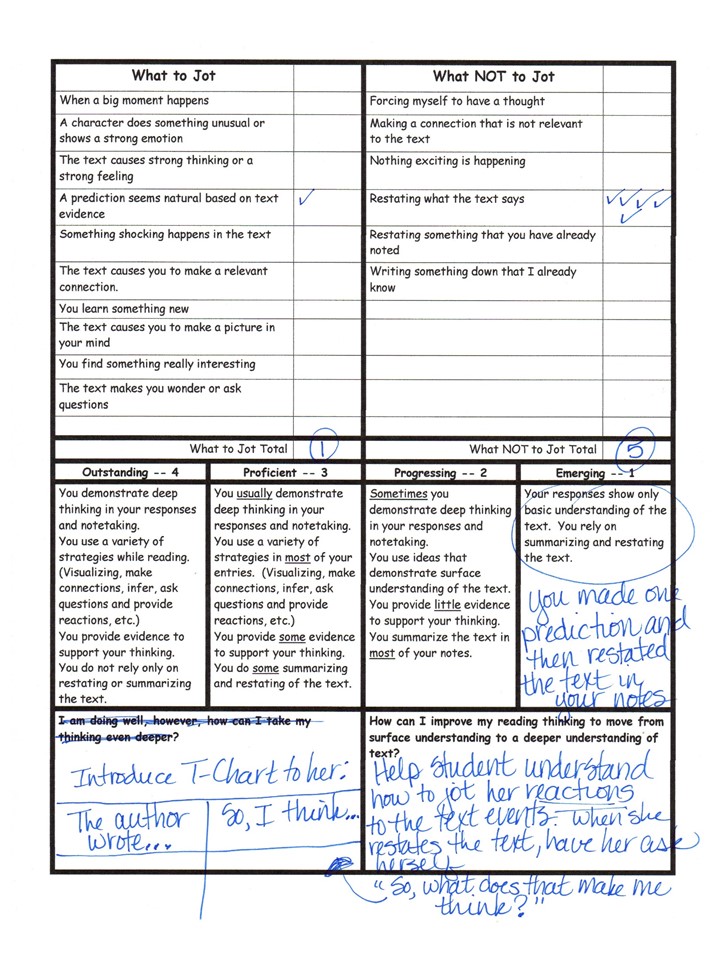 What to Jot
What NOT to Jot
When a big moment happens
Forcing myself to have a thought
A character does something unusual or
shows a strong emotion
Making a connection that is not relevant
to the text
The text causes strong thinking or a
strong feeling
Nothing exciting is happening
A prediction seems natural based on text
evidence
✓
Restating what the text says
✓✓✓✓
✓
Something shocking happens in the text
Restating something that you have already
noted
The text causes you to make a relevant
connection.
Writing something down that I already
know
You learn something new
The text causes you to make a picture in
your mind
You find something really interesting
The text makes you wonder or ask
questions
What to Jot Total 1
What NOT to Jot Total 5
Outstanding -- 4
You demonstrate deep
thinking in your responses
and notetaking.
You use a variety of
strategies while reading.
(Visualizing, make
connections, infer, ask
questions and provide
reactions, etc.)
You provide evidence to
support your thinking.
You do not rely only on
restating or summarizing
the text.
Proficient -- 3
You usually demonstrate
deep thinking in your
responses and notetaking.
You use a variety of
strategies in most of your
entries. (Visualizing, make
connections, infer, ask
questions and provide
reactions, etc.)
You provide some evidence
to support your thinking.
You do some summarizing
and restating of the text.
Progressing -- 2
Sometimes you
demonstrate deep thinking
in your responses and
notetaking.
You use ideas that
demonstrate surface
understanding of the text.
You provide little evidence
to support your thinking.
You summarize the text in
most of your notes.
Emerging -- 1
Your responses show only
basic understanding of the
text. You rely on
summarizing and restating
the text.
You made one
prediction and
then restated
the text in
your notes
I am doing well, however, how can I take my
thinking even deeper?
Introduce T-Chart to her:
The author
wrote...
So, I think...
How can I improve my reading thinking to move from
surface understanding to a deeper understanding of
text?
Help student understand
how to jot her reactions
to the text events. When she
restates the text, have her ask
herself
"So, what does that make me
think?"